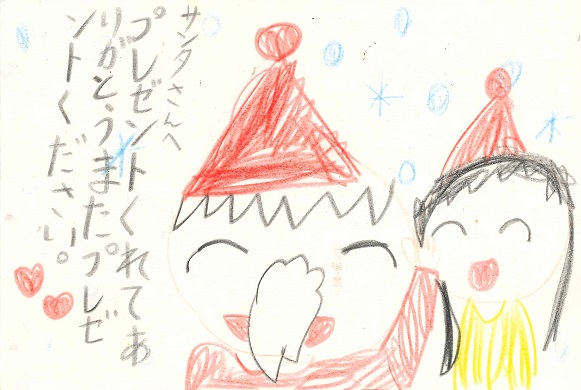 サンタさんへ
プレゼントくれてあ
りがとうまたプレゼ
ントください。